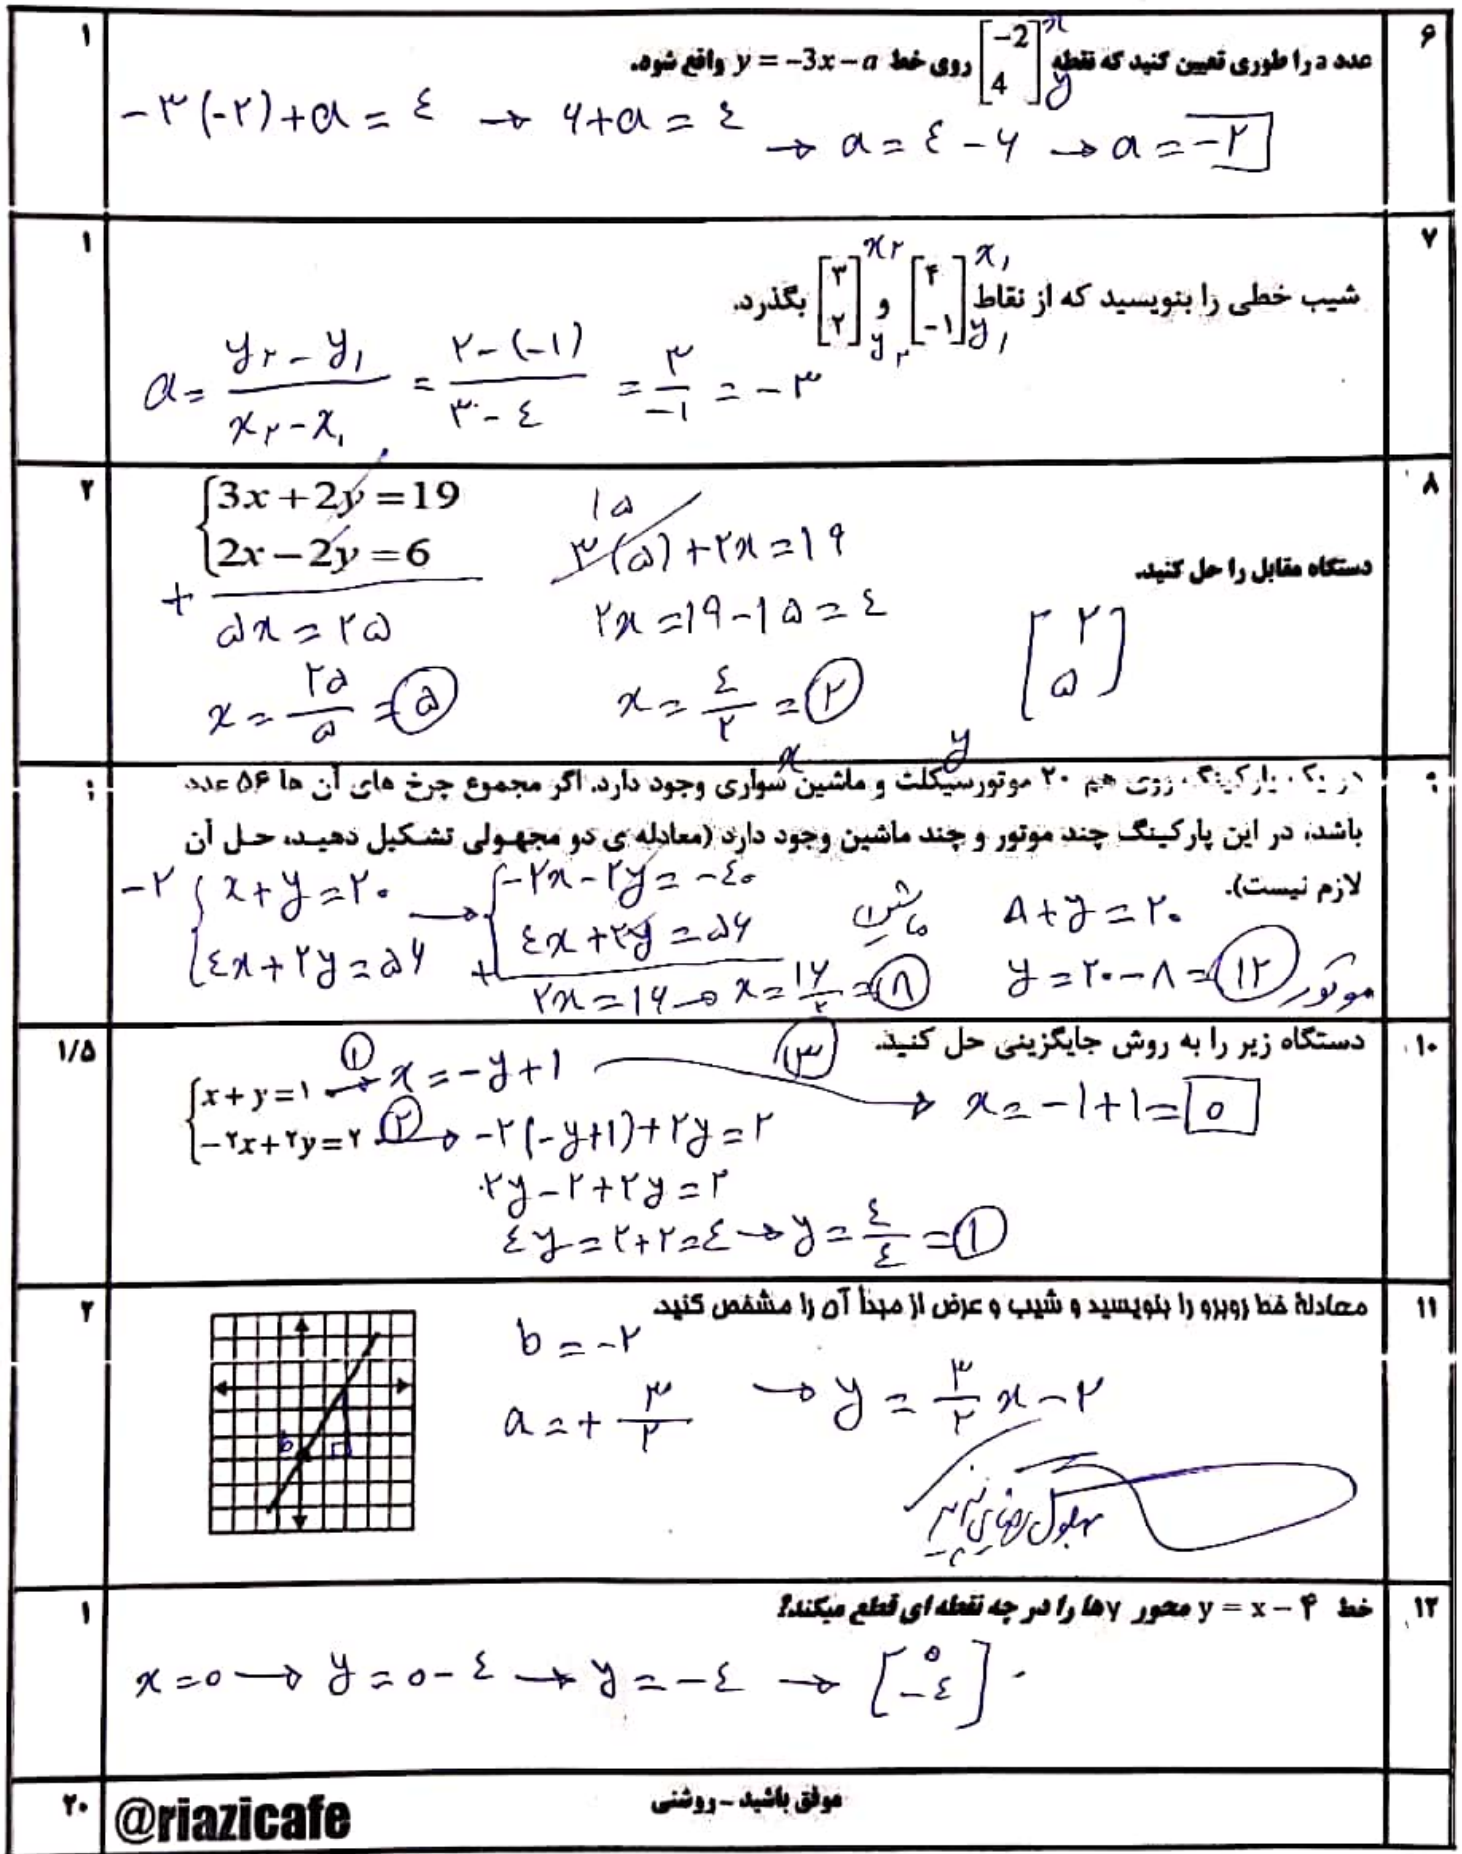 ۶
عدد a را طوری تعیین کنید که نقطه [-2 4] روی خط y = -3x - a واقع شود.
۱
x
y
-۳(-۲)+a = ٤ → ۶+a = ٤
→ a = ٤ - ۶ → a = -۲
۷
شیب خطی را بنویسید که از نقاط [۴ -۱] و [۳ ۲] بگذرد.
۱
x۱
y۱
x۲
y۲
a = (y۲ - y۱)/(x۲ - x۱) = (۲-(-۱))/(۳-٤) = ۳/-۱ = -۳
۸
دستگاه مقابل را حل کنید.
۲
3x + 2y = 19
2x - 2y = 6
+
۵x = ۲۵
x = ۲۵/۵ = ۵
۱۵
۳(۵)+۲x = ۱۹
۲x = ۱۹-۱۵ = ٤
x = ٤/۲ = ۲
[۲ ۵]
x
y
در یک پارکینگ روی هم ۲۰ موتورسیکلت و ماشین سواری وجود دارد. اگر مجموع چرخ های آن ها ۵۶ عدد
باشد، در این پارکینگ چند موتور و چند ماشین وجود دارد (معادله ی دو مجهولی تشکیل دهید، حل آن
لازم نیست).
-۲ { x+y=۲۰ → { -۲x-۲y = -٤۰
٤x+۲y=۵۶
٤x+۲y = ۵۶
+
۲x = ۱۶ → x = ۱۶/۲ = ۸
ماشین
۸+y = ۲۰
y = ۲۰-۸ = ۱۲ موتور
۱۰
دستگاه زیر را به روش جایگزینی حل کنید.
۱/۵
x + y = ۱ ① → x = -y+1 ③ → x = -1+1 = 0
-۲x + ۲y = ۲ ② → -۲(-y+1)+۲y = ۲
۲y-۲+۲y = ۲
٤y = ۲+۲ = ٤ → y = ٤/٤ = ۱
۱۱
معادلهٔ خط روبرو را بنویسید و شیب و عرض از مبدأ آن را مشخص کنید.
۲
b
b = -۲
a = + ۳/۲ → y = ۳/۲ x - ۲
۱۲
خط y = x - ۴ محور yها را در چه نقطه ای قطع میکند؟
۱
x = 0 → y = 0 - ٤ → y = -٤ → [0 -٤]
موفق باشید - روشنی
۲۰
@riazicafe